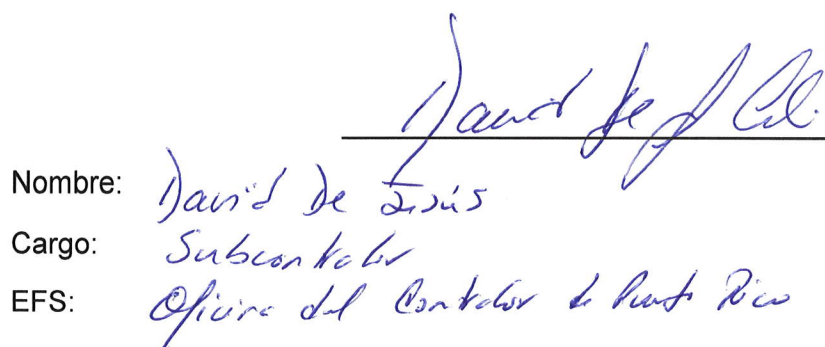 David De J
Nombre: David De Jesús
Cargo: Subcontralor
EFS: Oficina del Contralor de Puerto Rico